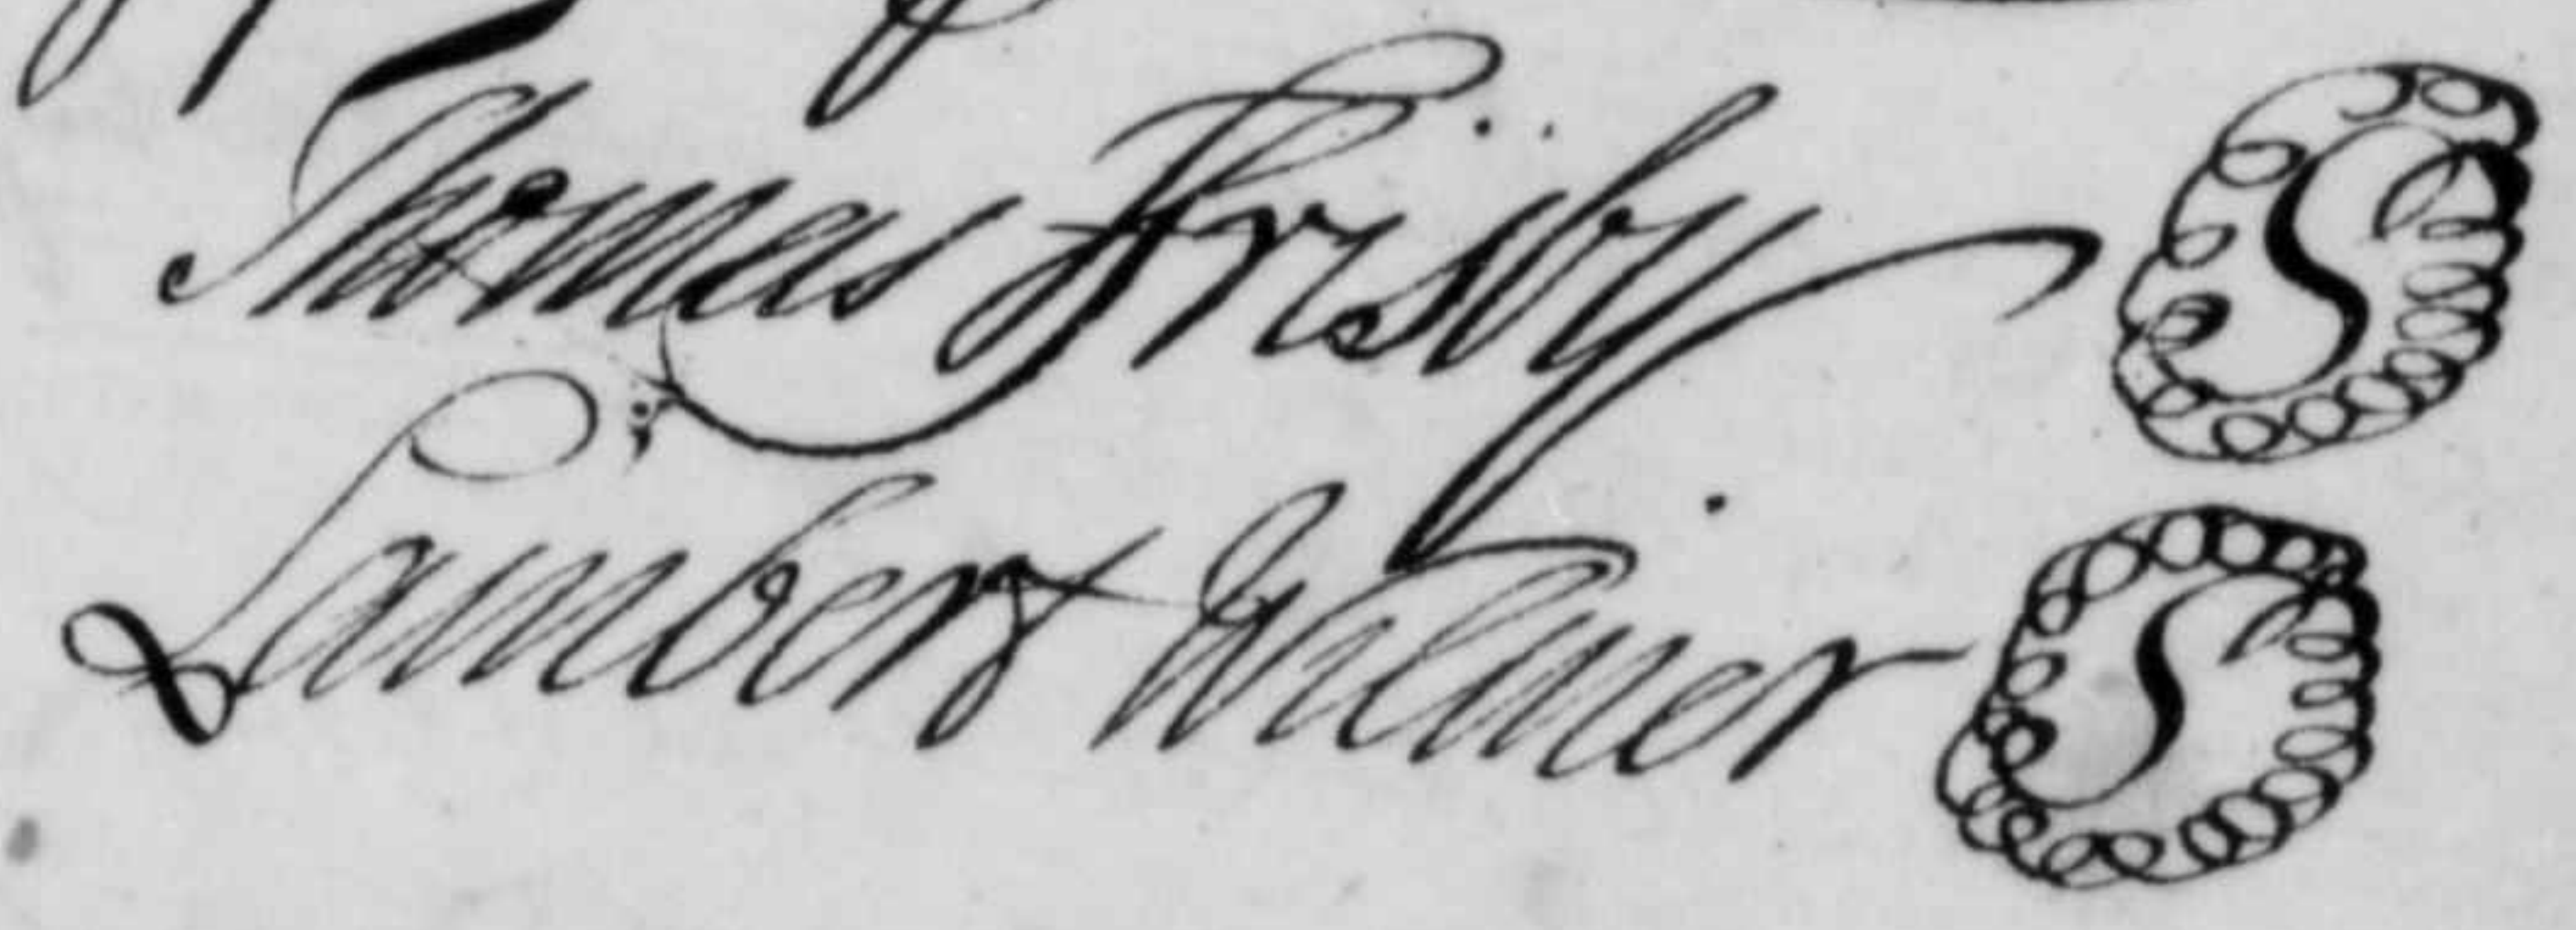 Thomas Frisby S
Lambert Wilmer S